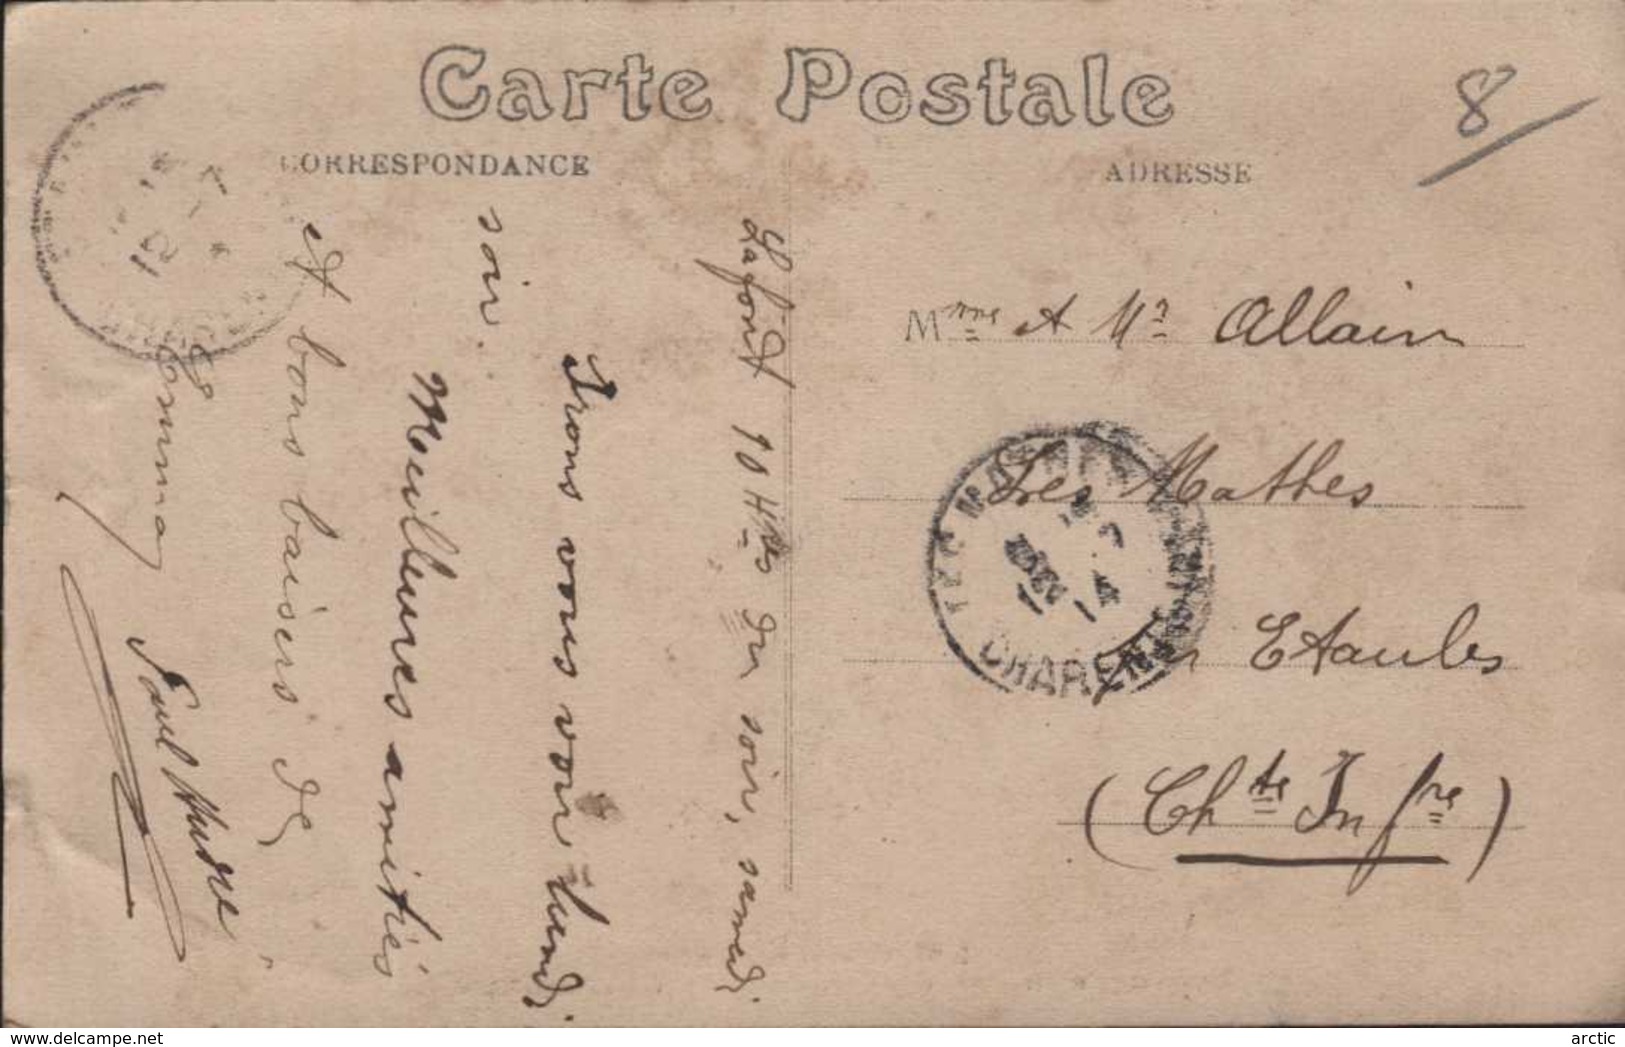 Carte Postale
CORRESPONDANCE
ADRESSE
8
Lafond 10 Hres du soir, samedi
Irons vous voir lundi
soir.
Meilleures amitiés
et bons baisers de
Paul André
Mme et Mr Allain
Les Mathes
Etaules
(Chte Infre)
LES MATHES
CHARENTE
www.delcampe.net
arctic